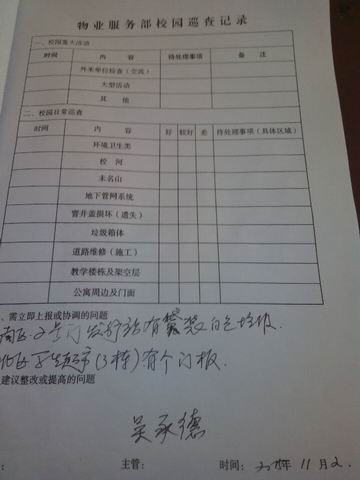 物业服务部校园巡查记录
一、校园重大活动
时间 内 容 待处理事项 备 注
外来单位检查（交流）
大型活动
其 他
二、校园日常巡查
时间 内 容 好 较好 差 待处理事项（具体区域）
环境卫生类
校 河
未名山
地下管网系统
窨井盖损坏（遗失）
垃圾箱体
道路维修（施工）
教学楼栋及架空层
公寓周边及门面
、需立即上报或协调的问题
南区 有 袋装白色垃圾.
北区 （3栋）有个门板.
建议整改或提高的问题
吴承德
： 主管： 时间： 11月2.